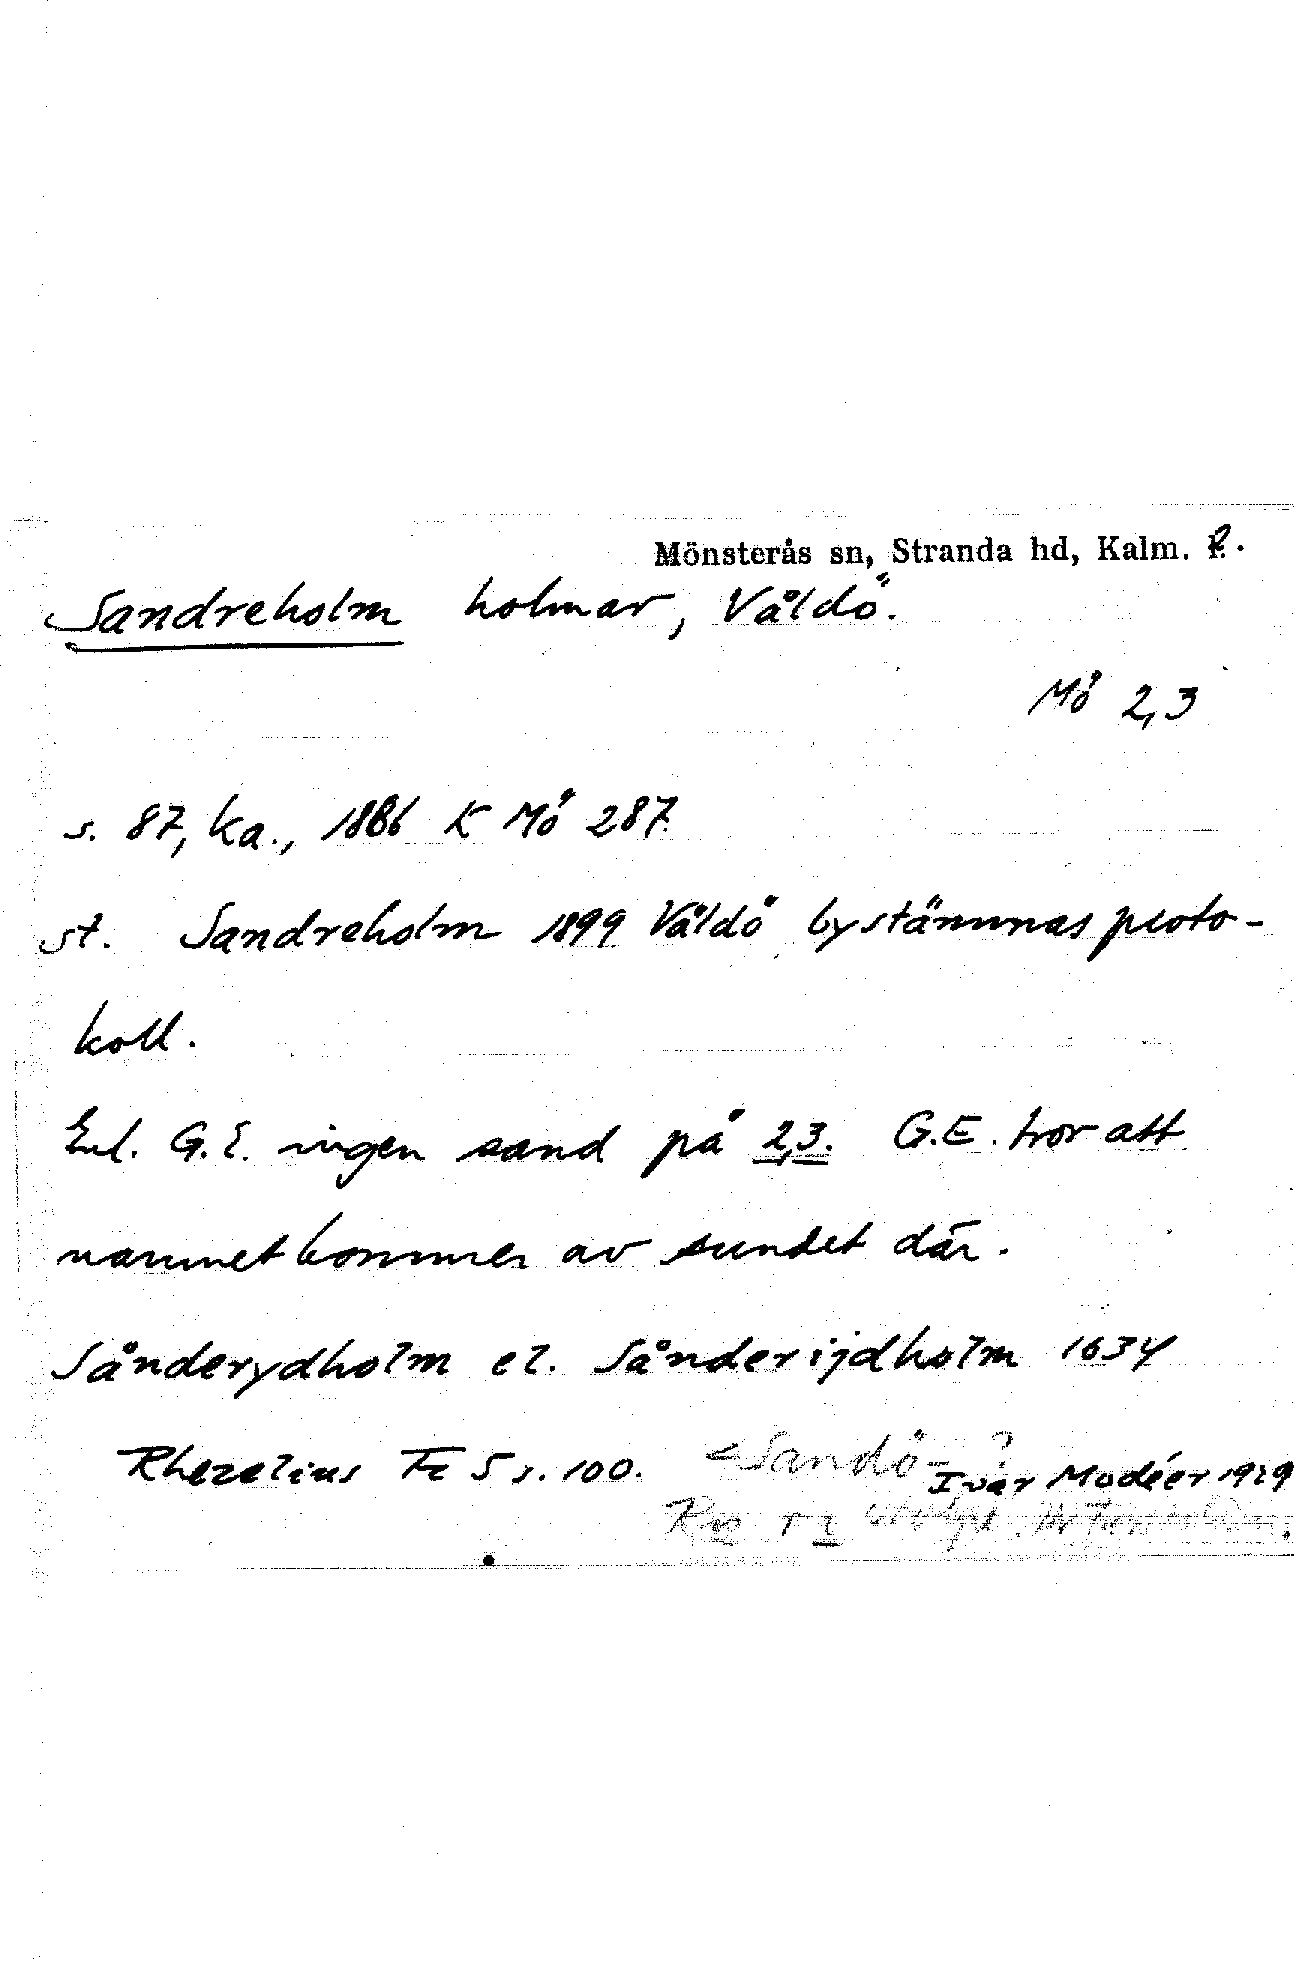 Mönsterås sn, Stranda hd, Kalm. l.
Sandreholm holmar, Våldö.
Mö 2,3
s. 87, ka., 1886 K Mö 287
st. Sandreholm 1899 Våldö bystämmas proto-
koll.
Enl. G.E. ingen sand på 2,3. G.E. tror att
namnet kommer av sundet där.
Sånderydholm el. Sånderijdholm 1634
Rhezelius Fc 5 s. 100. <Sandö- ?
Ivar Modéer 1929